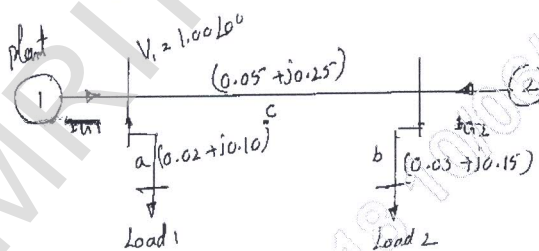 plant
V₁ = 1.00∠0°
1
(0.05 + j0.25)
2
c
a
(0.02 + j0.10)
b
(0.03 + j0.15)
Load 1
Load 2